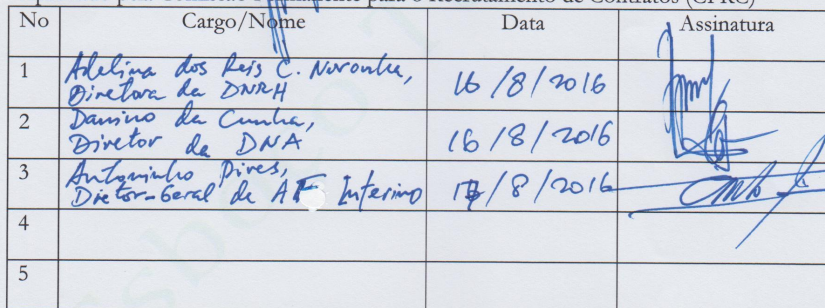 para o Recrutamento de Contratos (CPRC)
No Cargo/Nome Data Assinatura
1 Adelina dos Reis C. Noronha,
Diretora da DNRH 16/8/2016
2 Danino da Cunha,
Diretor da DNA 16/8/2016
3 Antoninho Pires,
Diretor-Geral de AF Interino /8/2016
4
5